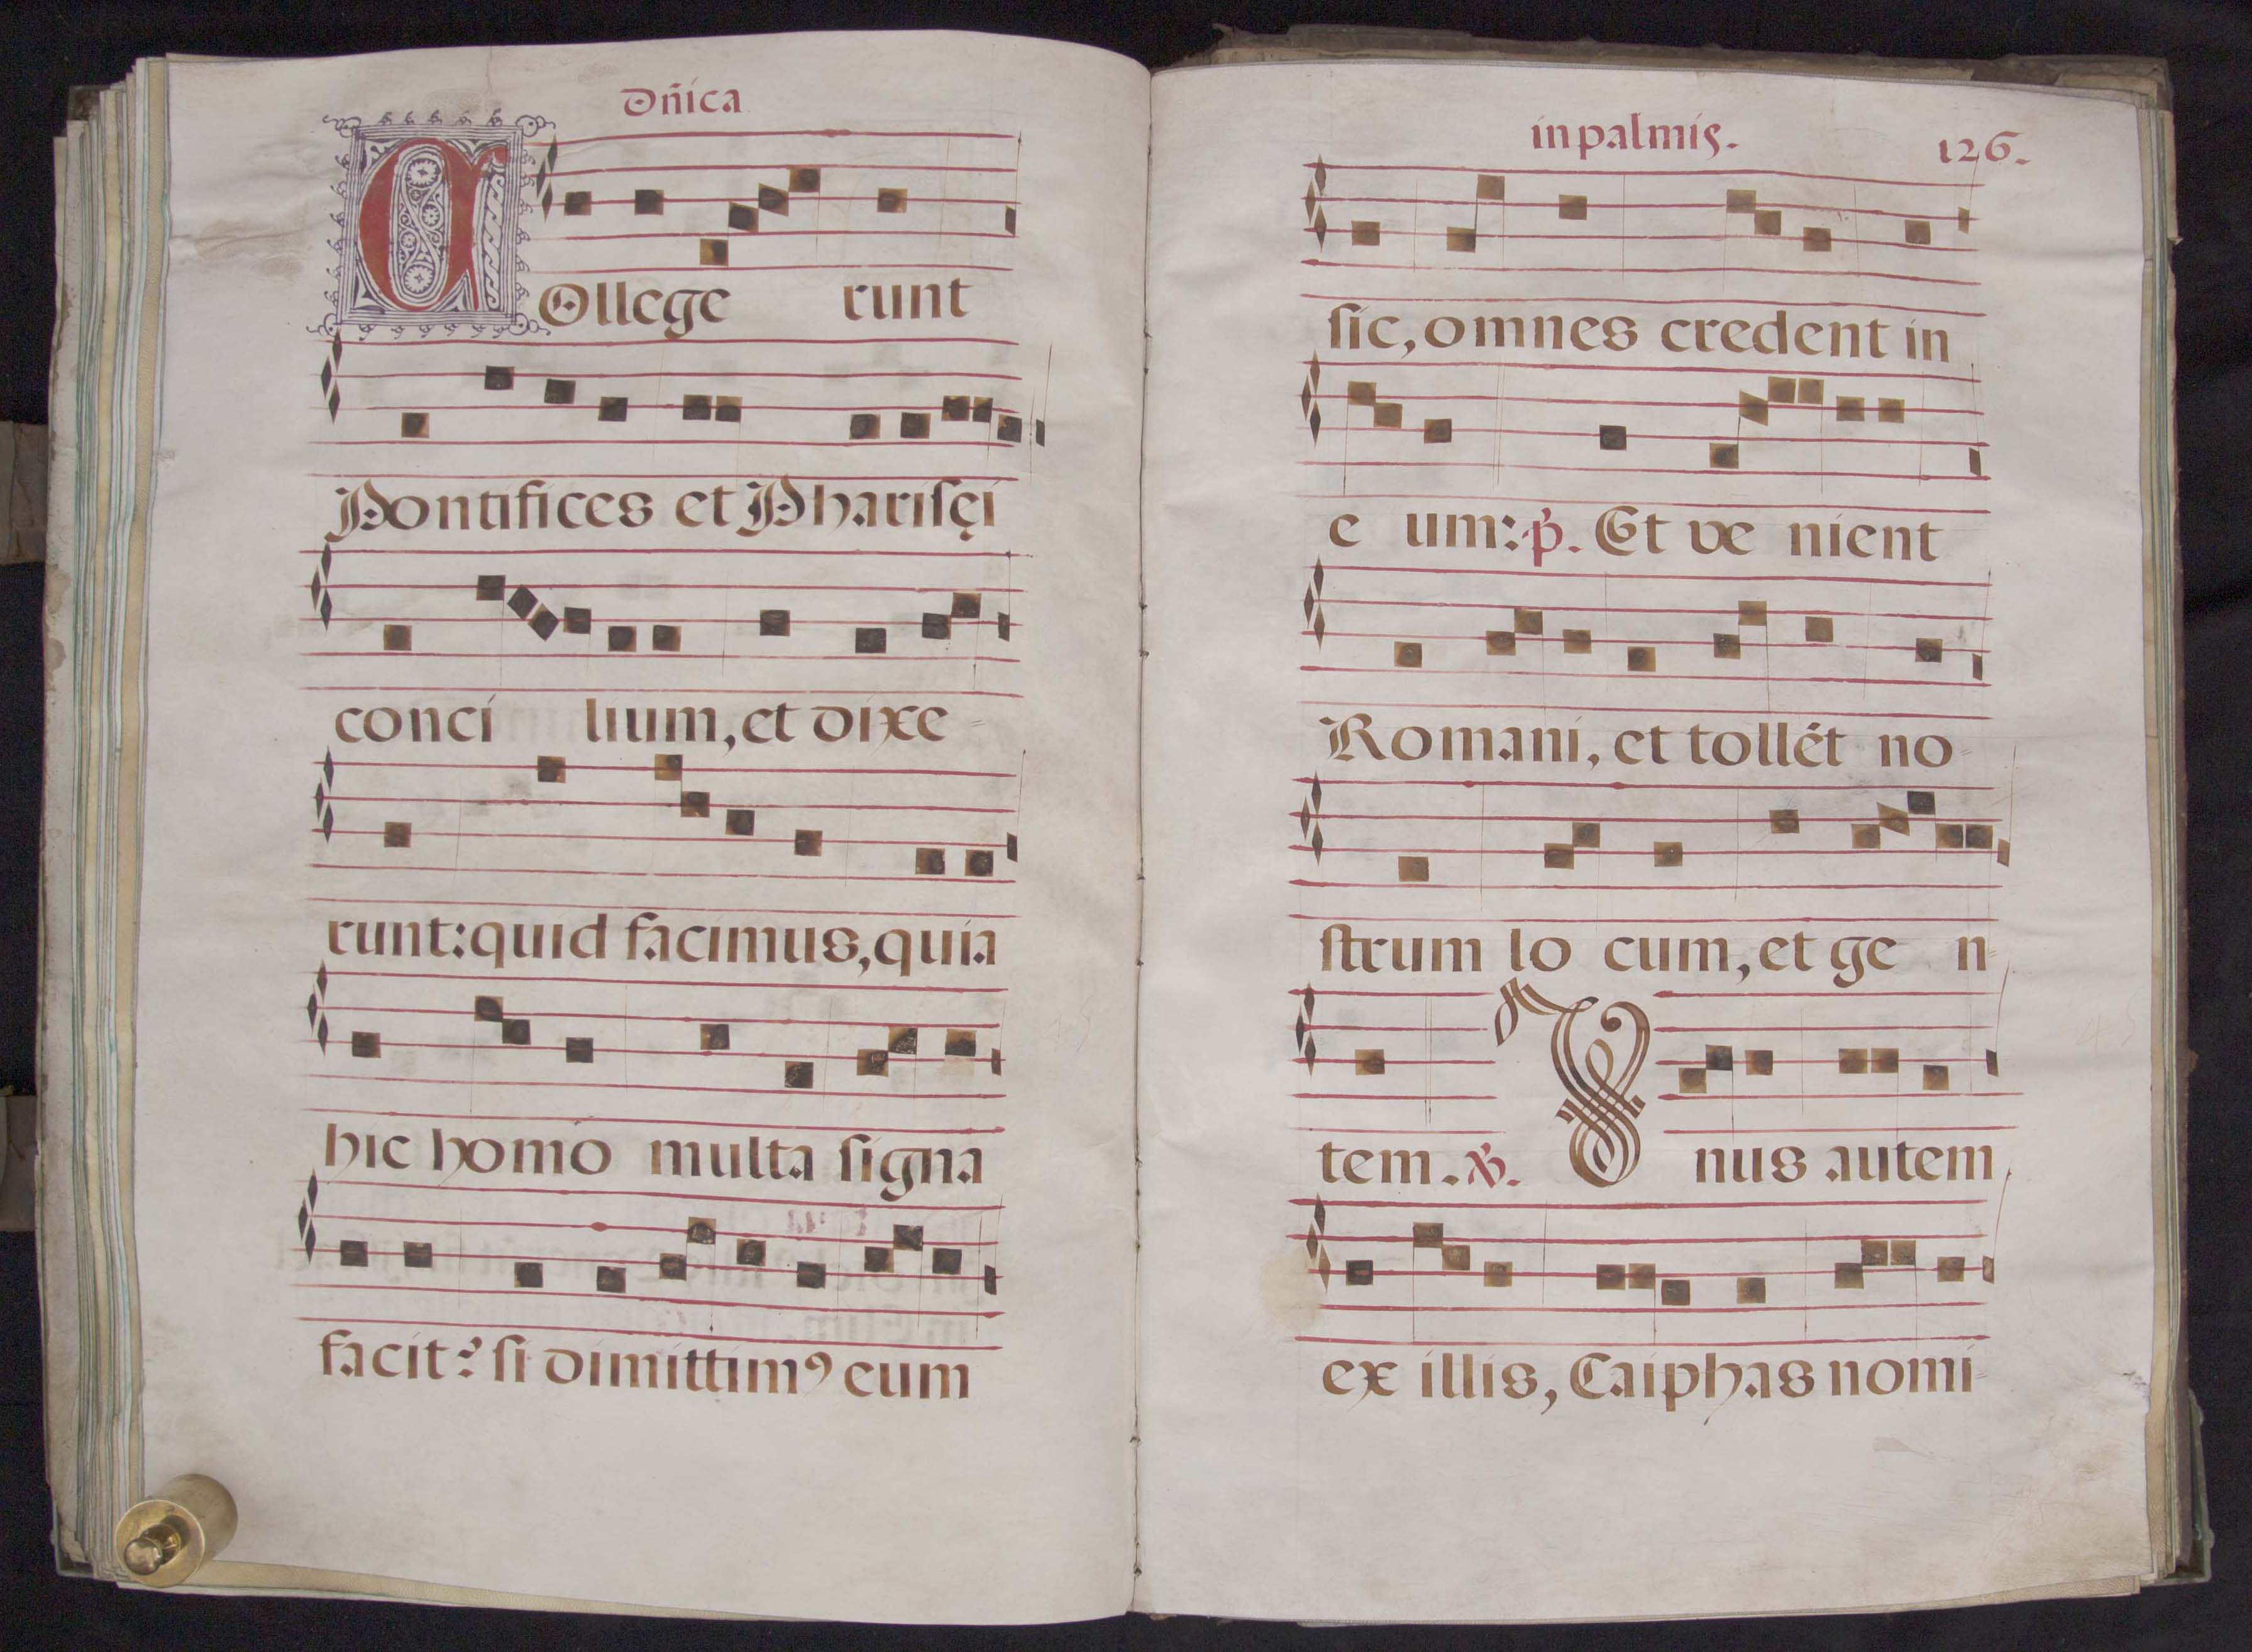 Dñica
COllege runt
Pontifices et Phariſęi
conci lium, et dixe-
runt: quid facimus, quia
hic homo multa ſigna
facit? ſi dimittimꝰ eum
in palmis. 126.
ſic, omnes credent in
e um: p̕. Et ve nient
Romani, et tollẽt no-
ſtrum lo cum, et ge n-
tem. ℣. Vnus autem
ex illis, Caiphas nomi-